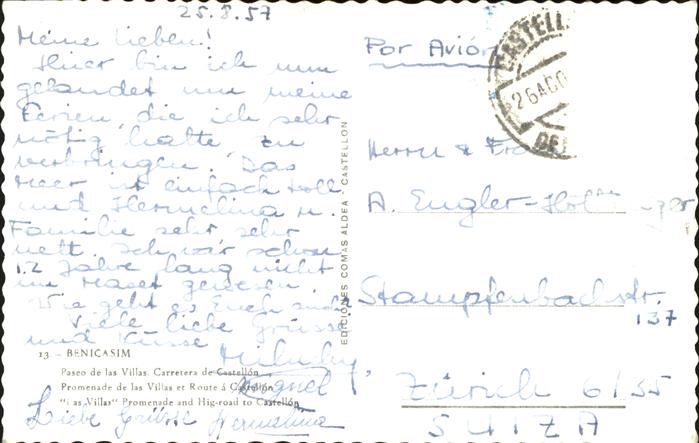 25.8.57
Meine Lieben!
Hier bin ich nun
gelandet um meine
Ferien, die ich sehr
nötig hatte zu
verbringen. Das
Meer ist einfach toll
und Hermelina u.
Familie sehr sehr
nett. Ich war schon
1.2 Jahre lang nicht
im Maset gewesen.
Wie geht es Euch
Viele liebe Grüsse
und Küsse
Miguel
Liebe Grüsse Hermelina
13 - BENICASIM
Paseo de las Villas. Carretera de Castellón
Promenade de las Villas et Route á Castellón
"Las Villas" Promenade and Hig-road to Castellón
EDICIONES COMAS ALDEA - CASTELLON
Por Avión
CASTELL
26 AGO
DE
Herrn & Fr
A. Engler-
Stampfenbachstr.
137
Zürich 6/35
SUIZA